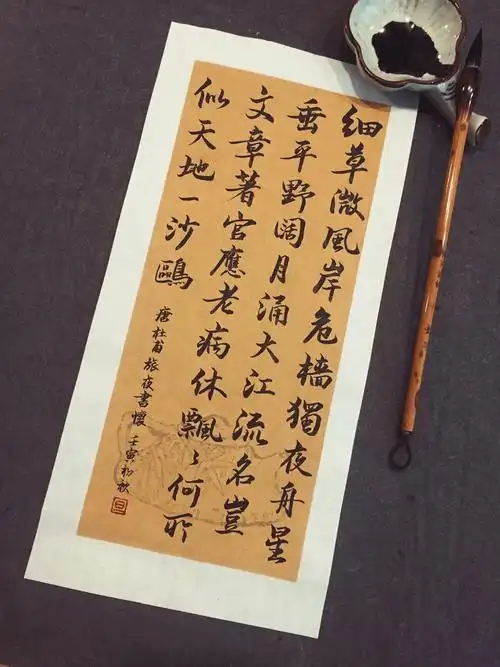 细草微風岸危檣獨夜舟星
垂平野阔月涌大江流名豈
文章著官應老病休飄〻何所
似天地一沙鷗
唐杜甫旅夜書懷 壬寅初秋